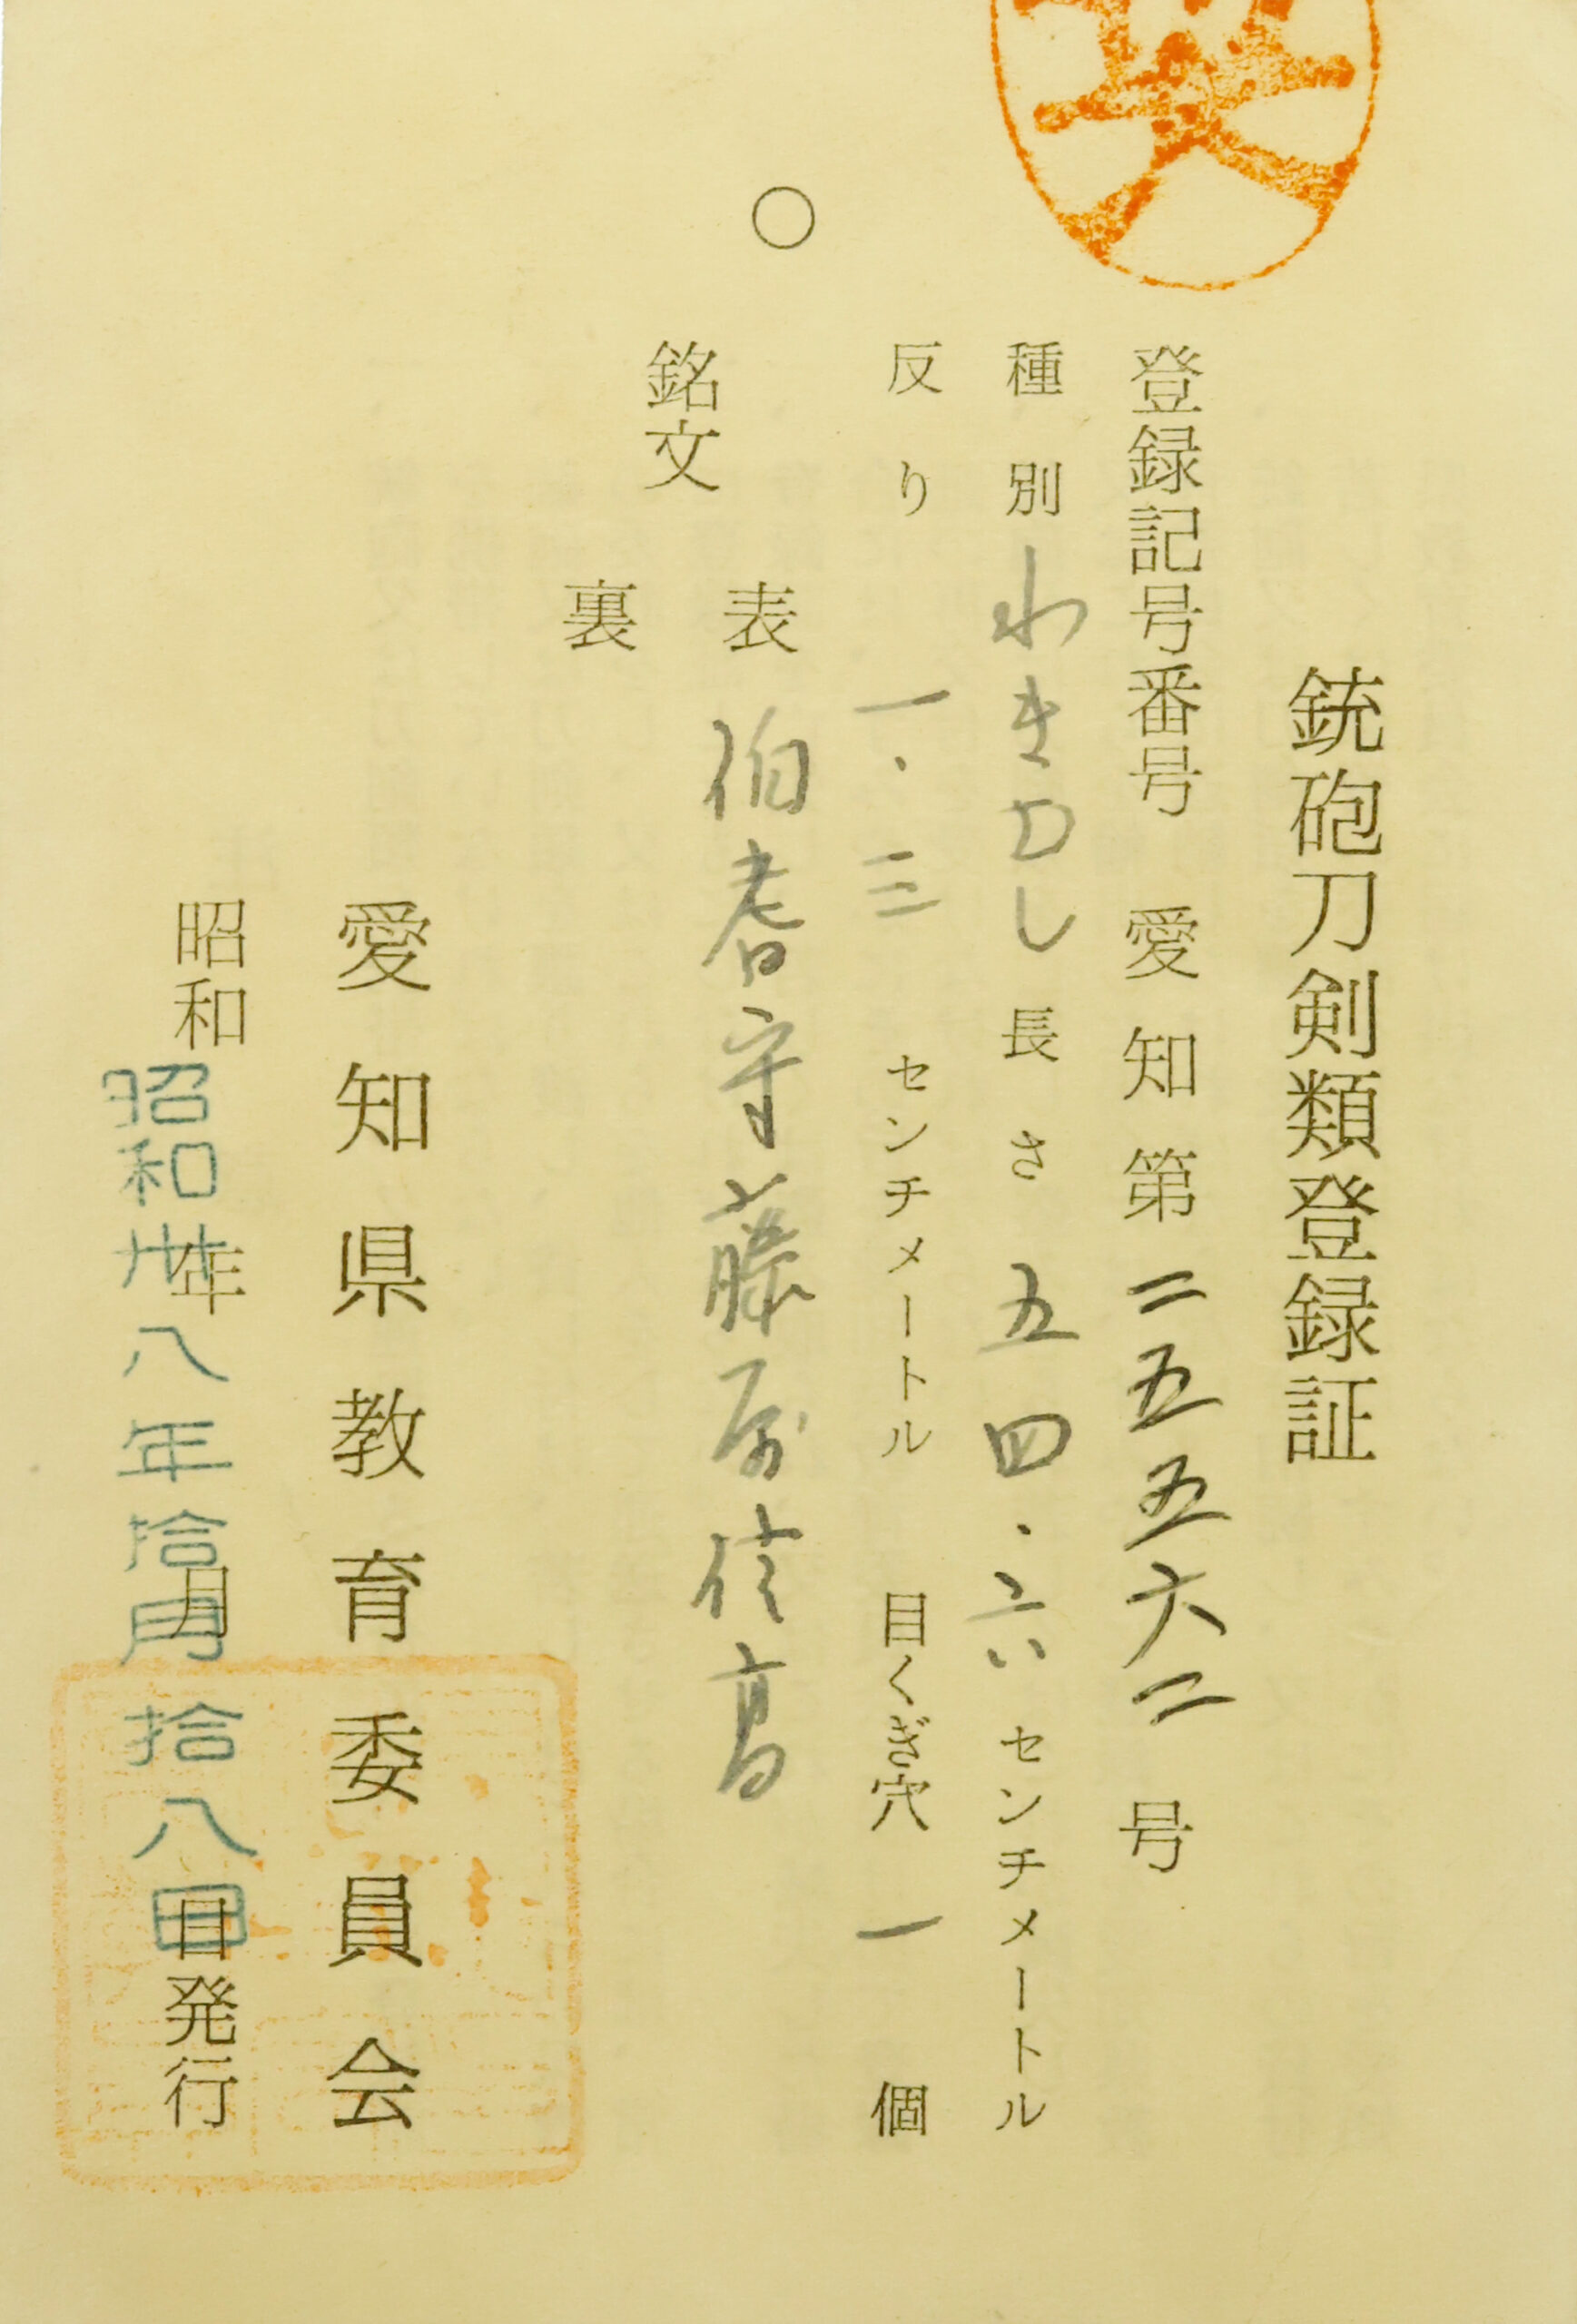 銃砲刀剣類登録証
登録記号番号 愛知第二五五六二号
種別 わきさし 長さ 五四・六 センチメートル
反り 一・三 センチメートル 目くぎ穴 一 個
○
銘文
表 伯耆守藤原信高
裏
愛知県教育委員会
昭和 年 月 日発行
昭和卅八年拾月拾八日